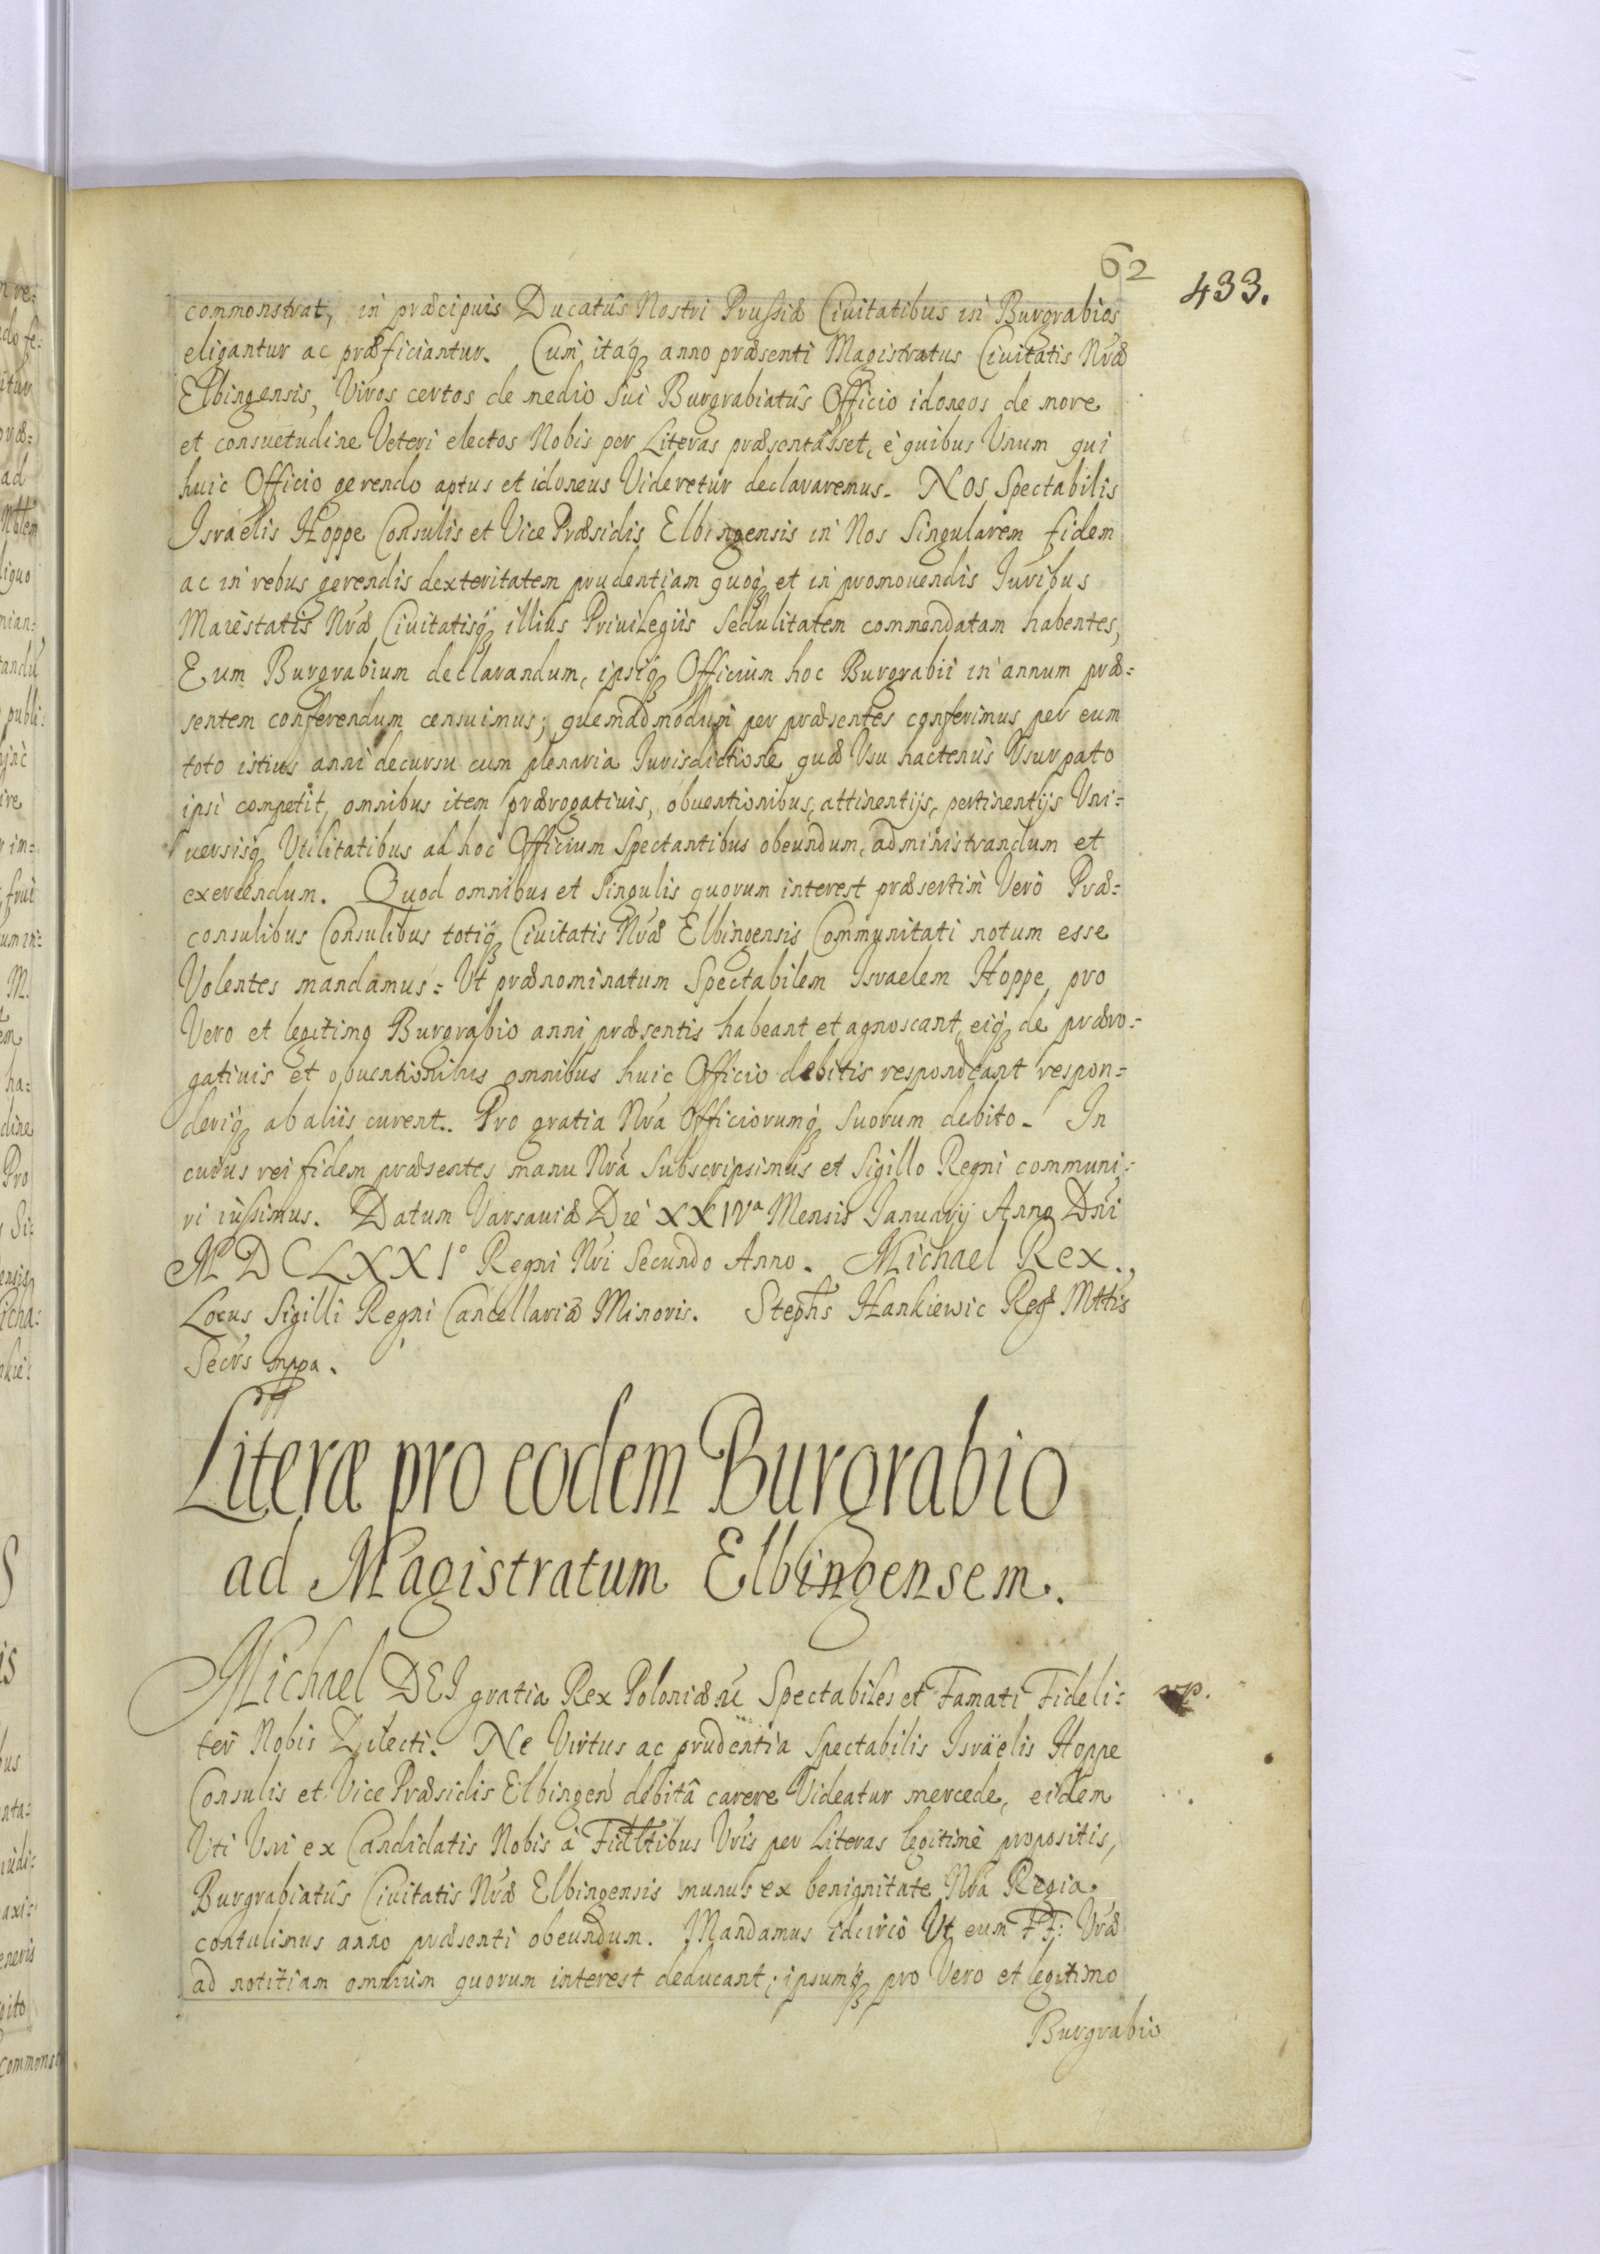 62
433.
commonstrat, in præcipuis Ducatûs Nostri Prussiæ Civitatibus in Burgrabios
eligantur ac præficiantur. Cum itaq3 anno præsenti Magistratus Civitatis Nræ
Elbingensis, Viros certos de medio sui Burgrabiatûs Officio idoneos de more
et consuetudine Veteri electos Nobis per Literas præsentâsset, è quibus Unum qui
huic Officio gerendo aptus et idoneus Videretur declararemus. Nos Spectabilis
Israëlis Hoppe Consulis et Vice Præsidis Elbingensis in Nos Singularem fidem
ac in rebus gerendis dexteritatem prudentiam quoq3 et in promouendis Iuribus
Maiestatis Nræ Ciuitatisq3 illius Priuilegiis Sedulitatem commendatam habentes,
Eum Burgrabium declarandum, ipsiq3 Officium hoc Burgrabii in annum præ=
sentem conferendum censuimus; quemadmodum per præsentes conferimus per eum
toto istius anni decursu cum plenaria Iurisdictione quæ Usu hactenus Usurpato
ipsi competit, omnibus item prærogatiuis, obuentionibus, attinentijs, pertinentijs Uni=
uersisq3 Utilitatibus ad hoc Officium Spectantibus obeundum, administrandum et
exercendum. Quod omnibus et Singulis quorum interest præsertim Verò Præ=
consulibus Consulibus totiq3 Ciuitatis Nræ Elbingensis Communitati notum esse
Volentes mandamus: Ut prænominatum Spectabilem Israelem Hoppe, pro
Vero et legitimo Burgrabio anni præsentis habeant et agnoscant, eiq3 de præro=
gatiuis et obuentionibus omnibus huic Officio debitis respondeant respon=
deriq3 ab aliis curent. Pro gratia Nra Officiorumq3 Suorum debito. In
cuius rei fidem præsentes manu Nrâ Subscripsimus et Sigillo Regni communi=
ri iussimus. Datum Varsauiæ Die XXIVa Mensis Ianuarij Anno Dni
MDCLXXIo Regni Nri Secundo Anno. Michael Rex.
Locus Sigilli Regni Cancellariæ Minoris. Stephs Hankiewic Reg Mttis
Secrs mppa.
Literæ pro eodem Burgrabio
ad Magistratum Elbingensem.
Michael DEI gratia Rex Poloniæ Spectabiles et Famati Fideli=
ter Nobis Dilecti. Ne Virtus ac prudentia Spectabilis Israëlis Hoppe
Consulis et Vice Præsidis Elbingen debitâ carere Videatur mercede, eidem
Uti Uni ex Candidatis Nobis à Fidltibus Vris per Literas legitimè propositis,
Burgrabiatûs Ciuitatis Nræ Elbingensis munus ex benignitate Nrâ Regia
contulimus anno præsenti obeundum. Mandamus idcirco Ut eum FF: Vræ
ad notitiam omnium quorum interest deducant; ipsumq3 pro Vero et legitimo
Burgrabio